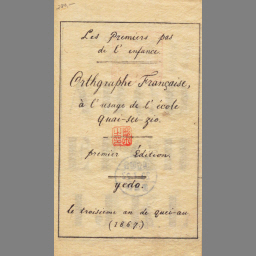 Les Premiers pas
de l'enfance.
Orthgraphe Française,
à l'usage de l'école
Quai-sei-zio.
premier Édition
yedo.
le troisieme an de quei-au
(1867)